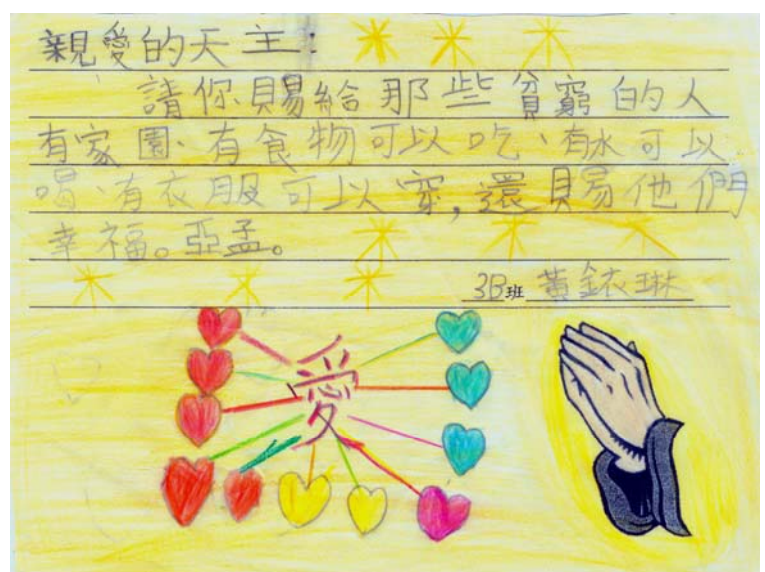 親愛的天主：
請你賜給那些貧窮的人
有家園、有食物可以吃、有水可以
喝、有衣服可以穿,還賜他們
幸福。亞孟。
3B班 黃銥琳
愛